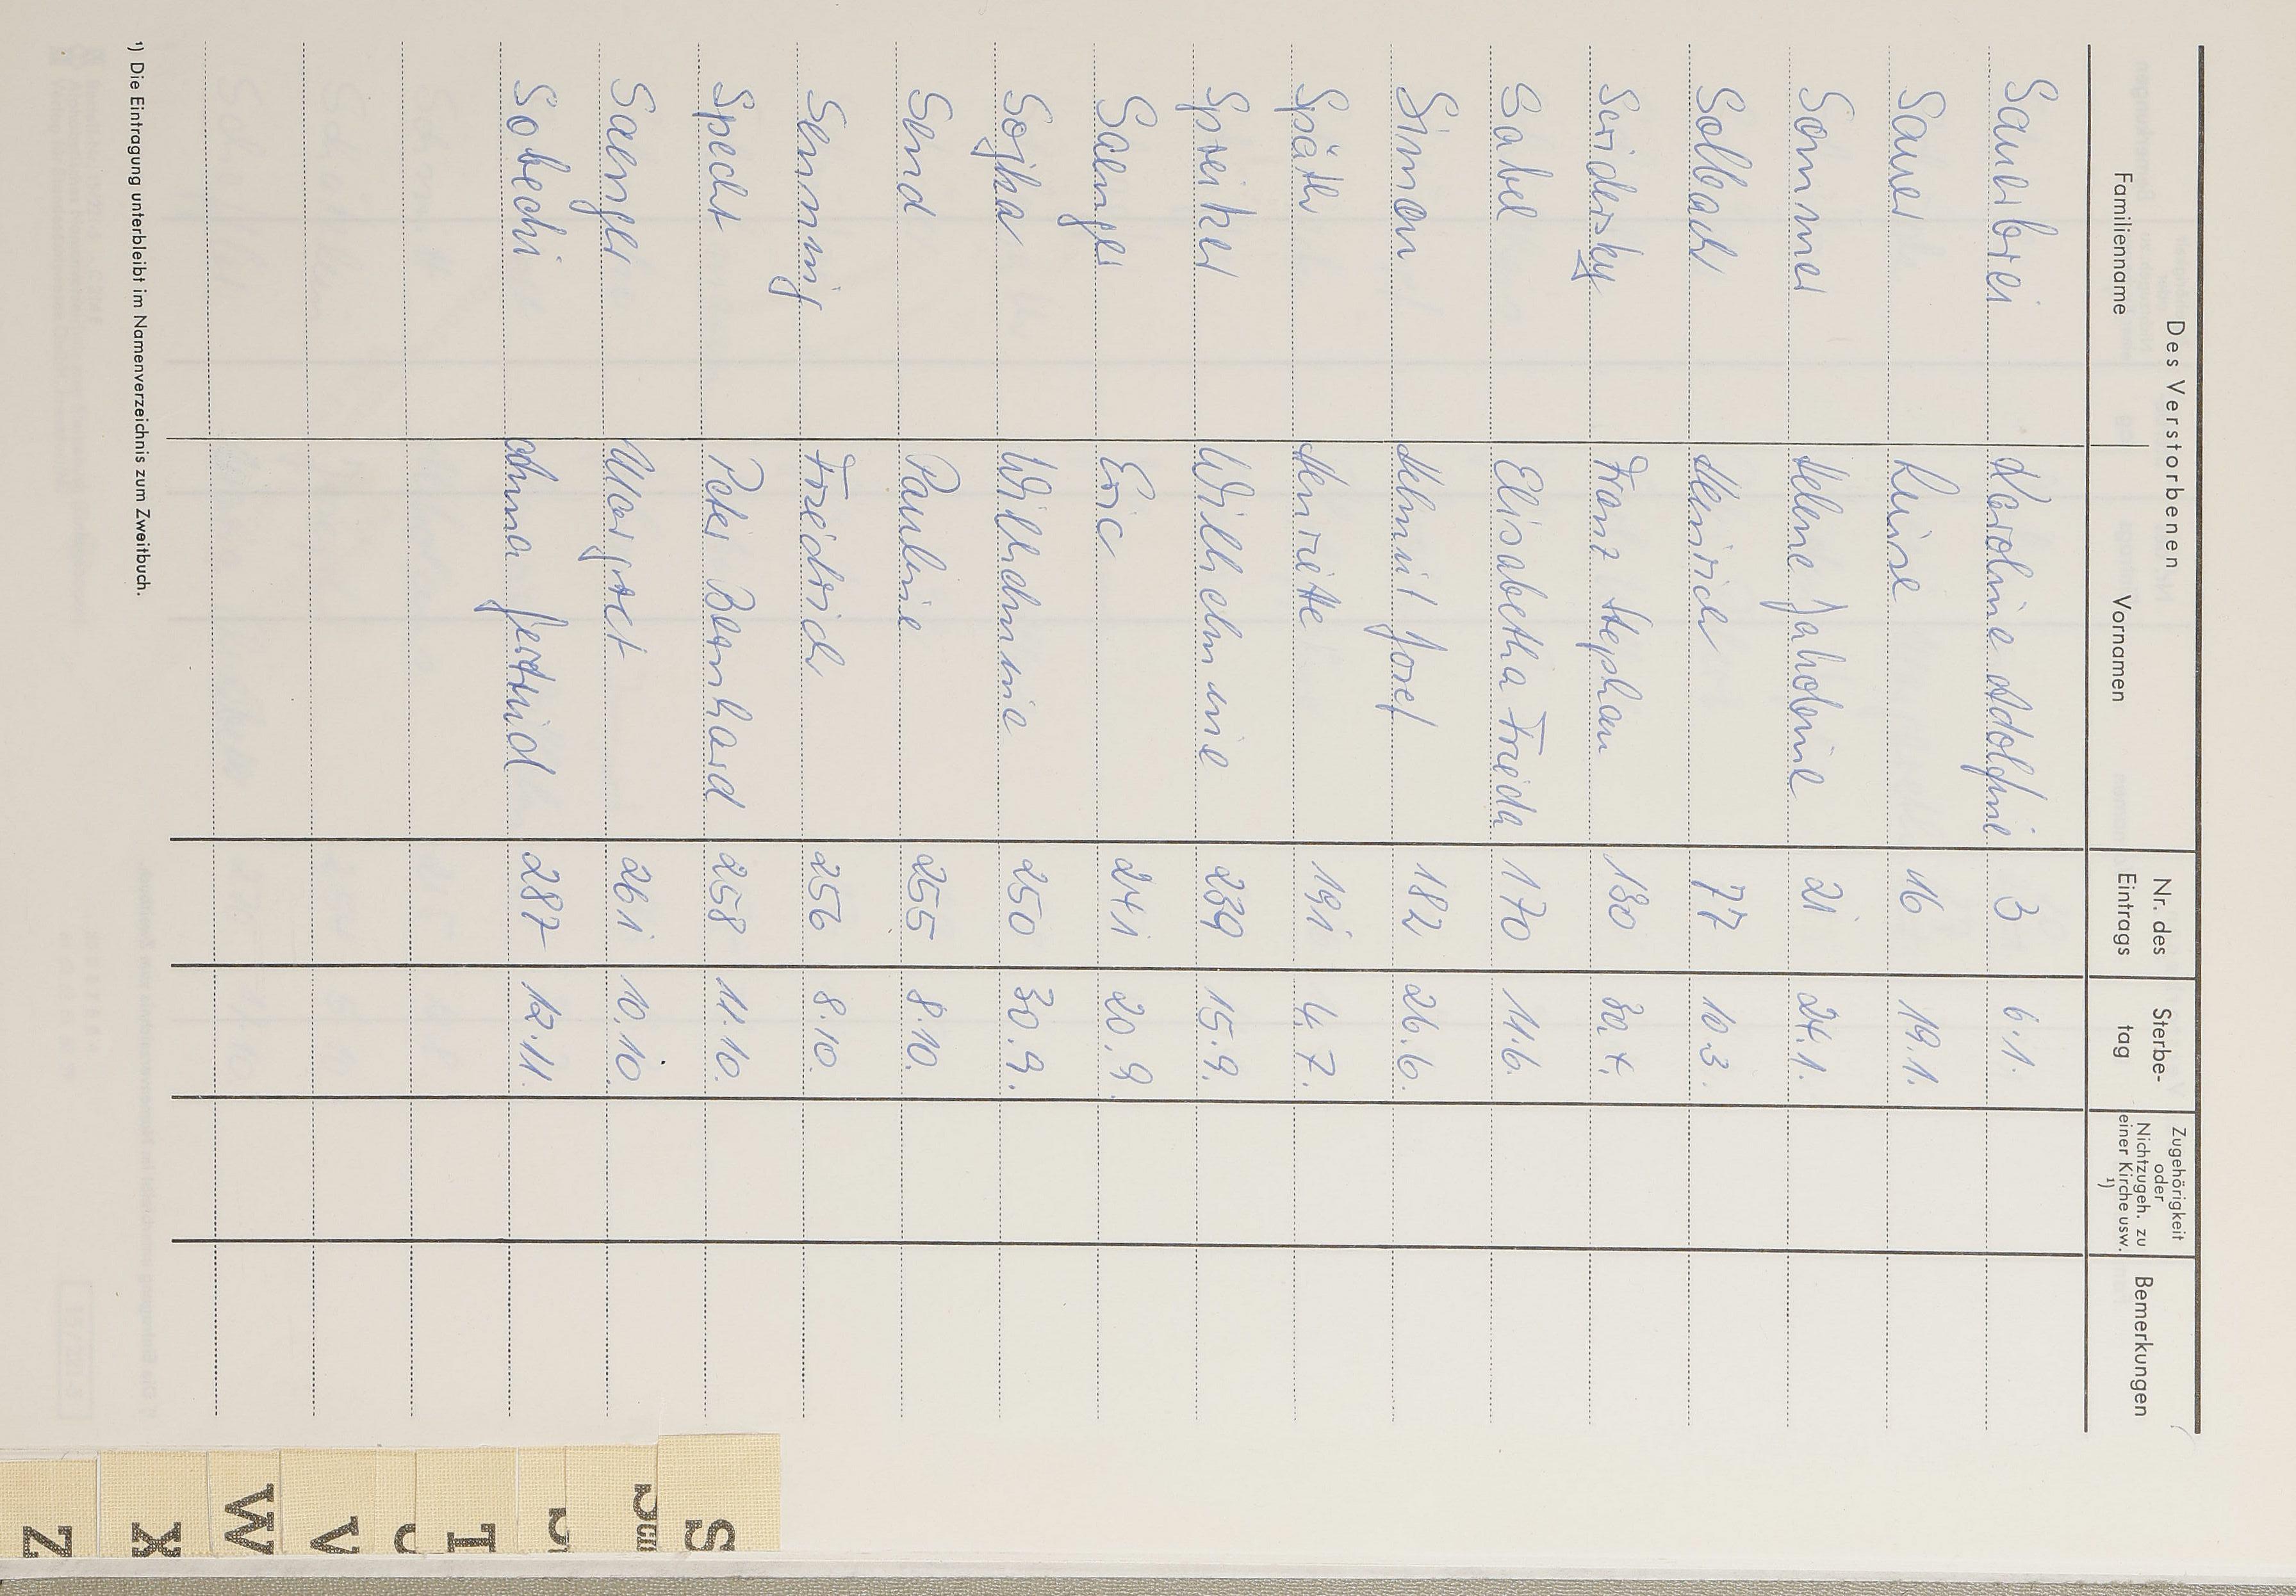 Des Verstorbenen
Familienname Vornamen Nr. des Eintrags Sterbe-tag Zugehörigkeit oder Nichtzugeh. zu einer Kirche usw. ¹) Bemerkungen
Sauerbrei Karoline Adolfine 3 6.1.
Sauer Luise 16 19.1.
Sommer Helene Jakobine 21 24.1.
Solbach Heinrich 77 10.3.
Franz Stephan 130 30.4.
Sabel Elisabetha Frieda 170 11.6.
Simon Helmut Josef 182 26.6.
Späth Henriette 191 4.7.
Spreiker Wilhelmine 239 15.9.
Saenger Eric 241 20.9.
Sojka Wilhelmine 250 30.9.
Send Pauline 255 8.10.
Senning Friedrich 256 8.10.
Specht Peter Bernhard 258 11.10.
Saenger Margret 261 10.10.
Sobechi Anna Gertrud 287 12.11.
¹) Die Eintragung unterbleibt im Namenverzeichnis zum Zweitbuch.
S
T
V
W
X
Z